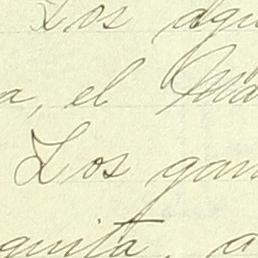 Los agu
a, el Ma
Los gan
quita, a